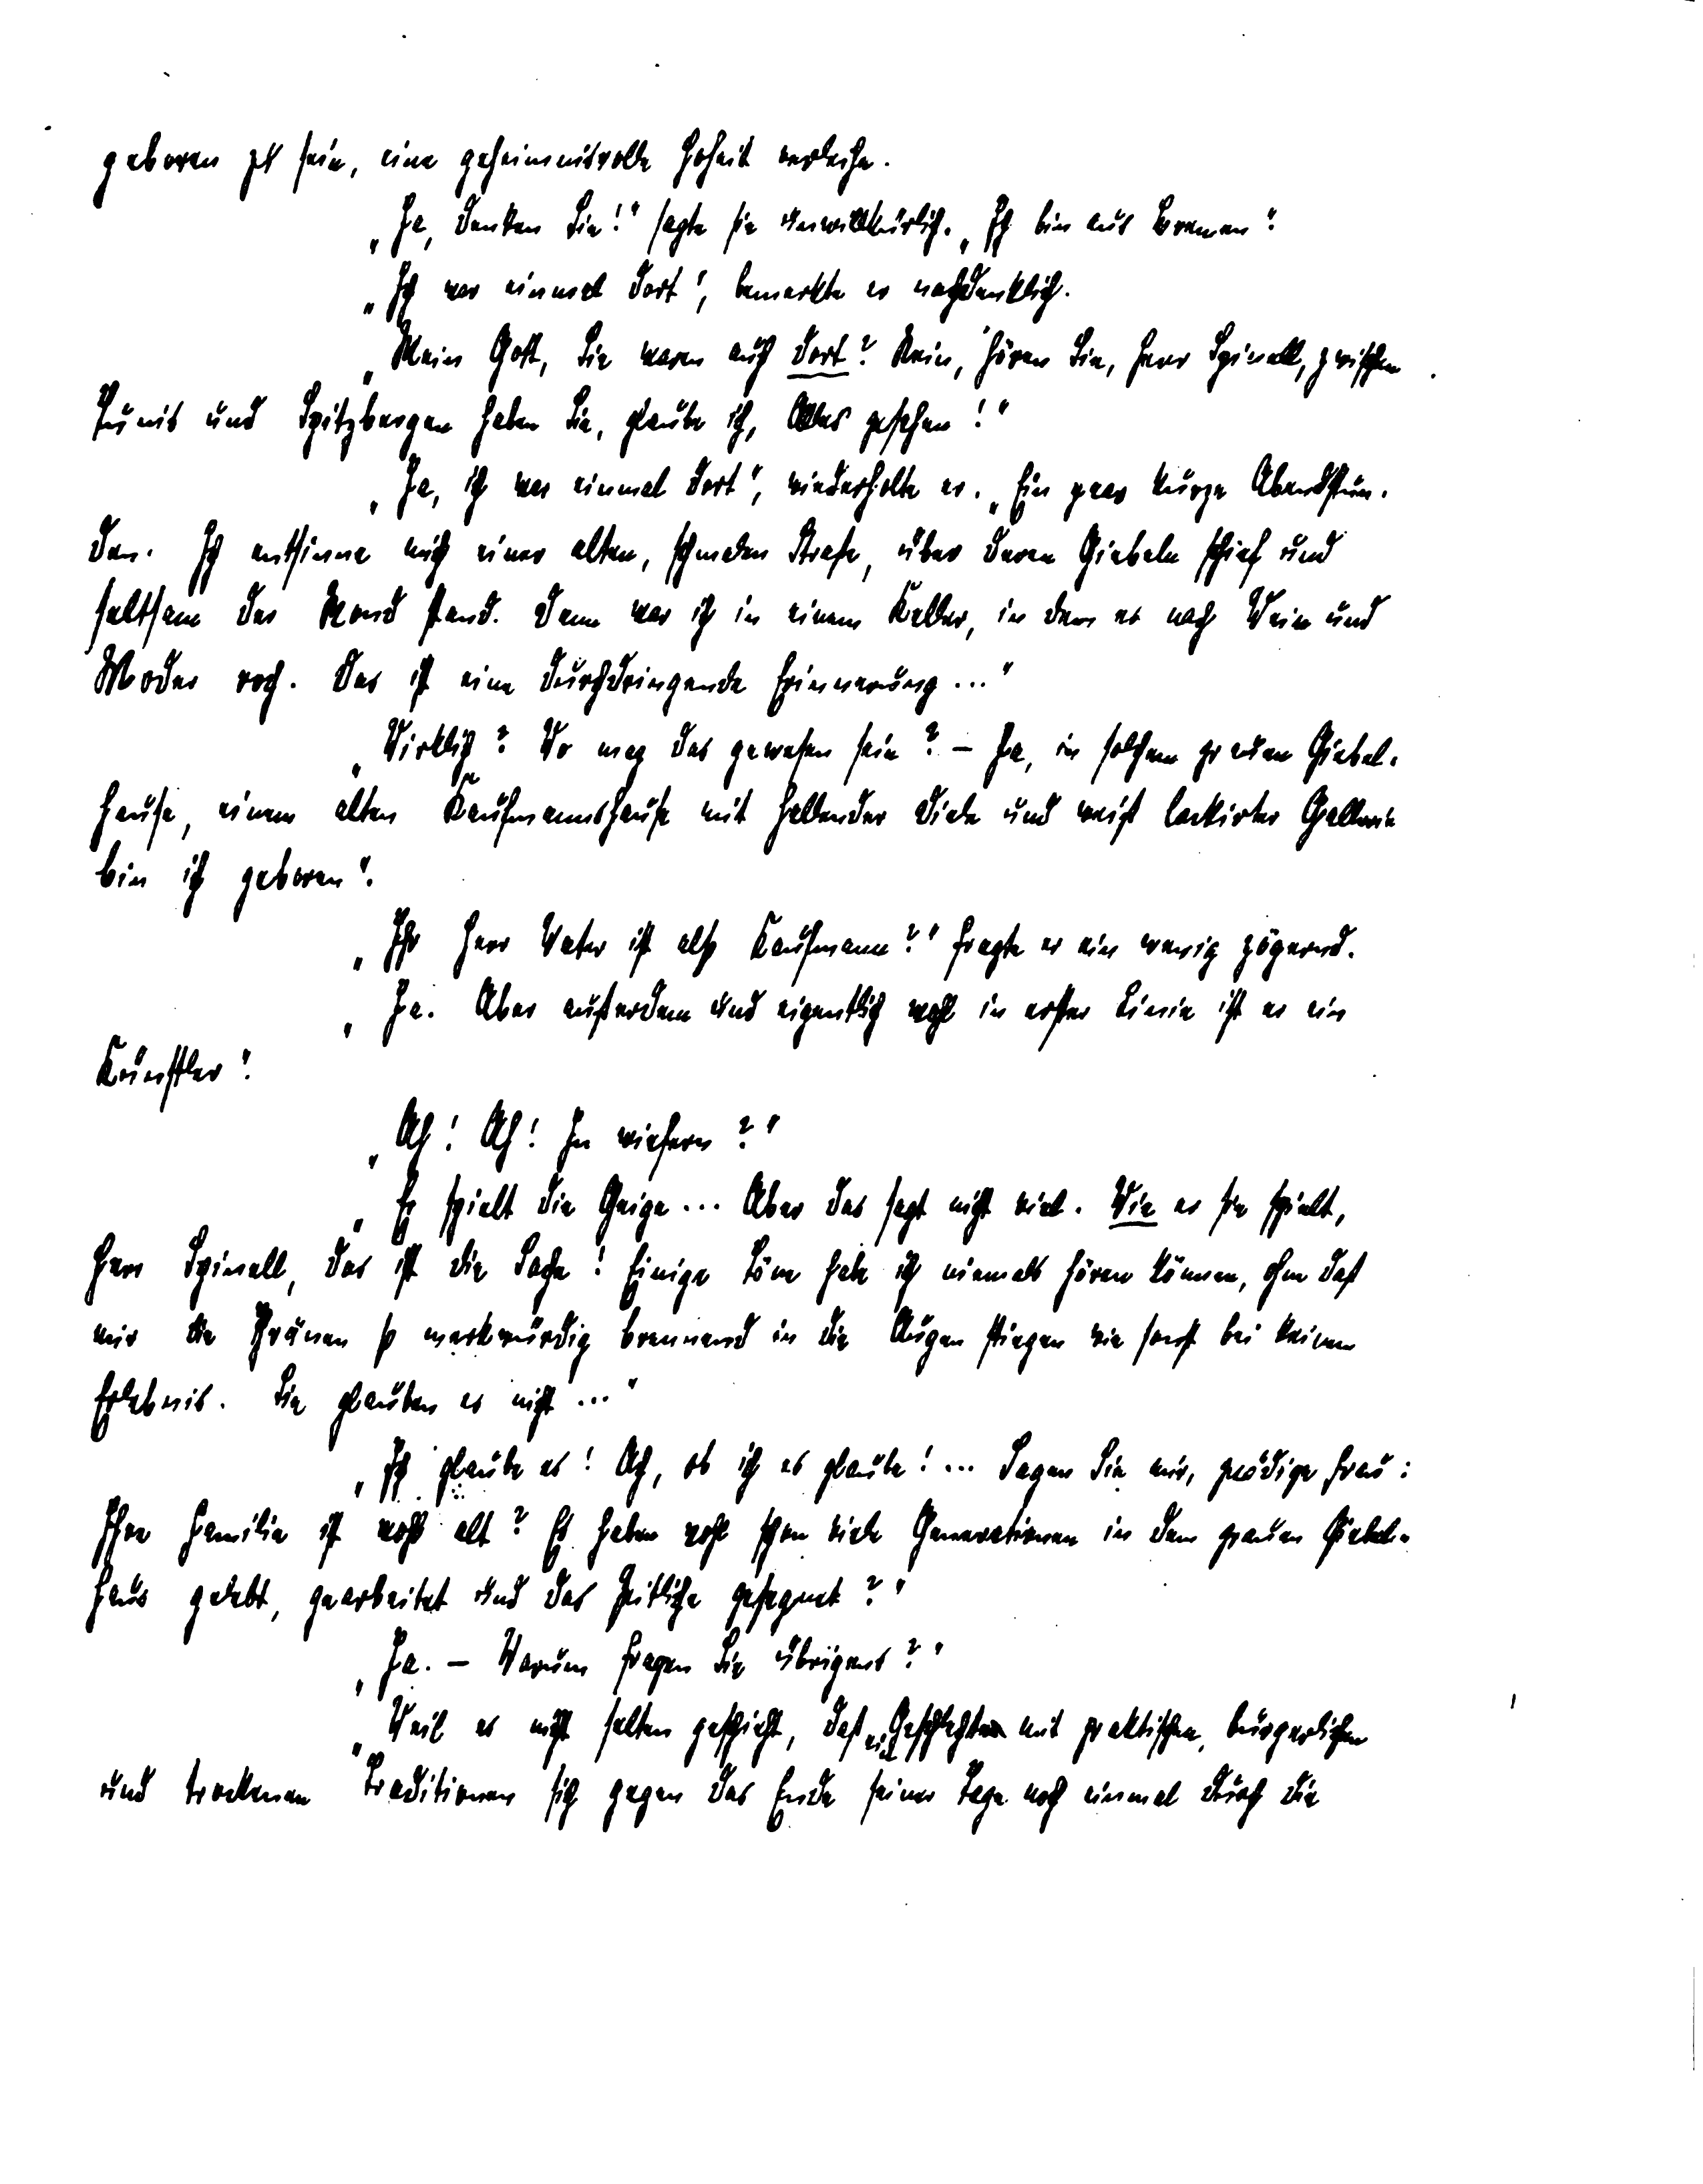 geboren zu sein, eine geheimnisvolle Hoheit verleihe.
„Ja, denken Sie!“ sagte sie unwillkürlich. „Ich bin aus Bremen“.
„Ich war einmal dort“, bemerkte er nachdenklich.
„Mein Gott, Sie waren auch dort? Nein, hören Sie, Herr Spinell, zwischen
Tunis und Spitzbergen haben Sie, glaube ich, Alles gesehen!“
„Ja, ich war einmal dort“, wiederholte er. „Ein paar kurze Abendstun-
den. Ich entsinne mich einer alten, schmalen Straße, über deren Giebeln schief und
seltsam der Mond stand. Dann war ich in einem Keller, in dem es nach Wein und
Moder roch. Das ist eine durchdringende Erinnerung ...“
„Wirklich? Wo mag das gewesen sein? – Ja, in solchem grauen Giebel-
hause, einem alten Kaufmannshause mit hallender Diele und weiß lackirter Gallerie
bin ich geboren“.
„Ihr Herr Vater ist also Kaufmann?“ fragte er ein wenig zögernd.
„Ja. Aber außerdem und eigentlich wohl in erster Linie ist er ein
Künstler“.
„Ah! Ah! In wiefern?“
„Er spielt die Geige ... Aber das sagt nicht viel. Wie er sie spielt,
Herr Spinell, das ist die Sache! Einige Töne habe ich niemals hören können, ohne daß
mir die Thränen so merkwürdig brennend in die Augen stiegen wie sonst bei keinem
Erlebnis. Sie glauben es nicht ...“
„Ich glaube es! Ach, ob ich es glaube! ... Sagen Sie mir, gnädige Frau:
Ihre Familie ist wohl alt? Es haben wohl schon viele Generationen in dem grauen Giebel-
haus gelebt, gearbeitet und das Zeitliche gesegnet?“
„Ja. – Warum fragen Sie übrigens?“
„Weil es nicht selten geschieht, daß ein Geschlecht mit praktischen, bürgerlichen
und trockenen Traditionen sich gegen das Ende seiner Tage noch einmal durch die